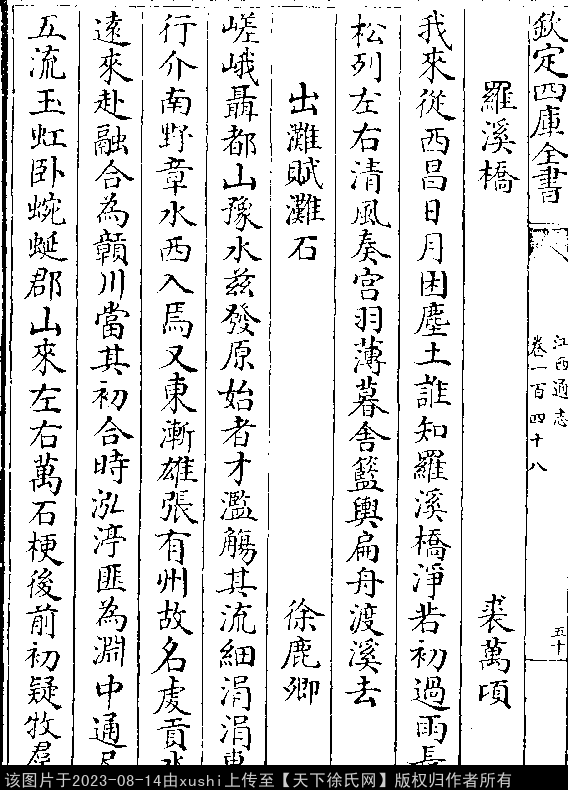 欽定四庫全書
江西通志
卷一百四十八
五十
羅溪橋 裘萬頃
我來從西昌日月困塵土誰知羅溪橋淨若初過雨長
松列左右清風奏宮羽薄暮舍籃輿扁舟渡溪去
出灘賦灘石 徐鹿卿
嵯峨聶都山豫水兹發原始者才濫觴其流細涓涓東
行介南野章水西入焉又東漸雄張有州故名虔貢水
遠來赴融合為贛川當其初合時泓渟匪為淵中通尺
五流玉虹卧蜿蜒郡山來左右萬石梗後前初疑牧羣
该图片于2023-08-14由xushi上传至【天下徐氏网】版权归作者所有